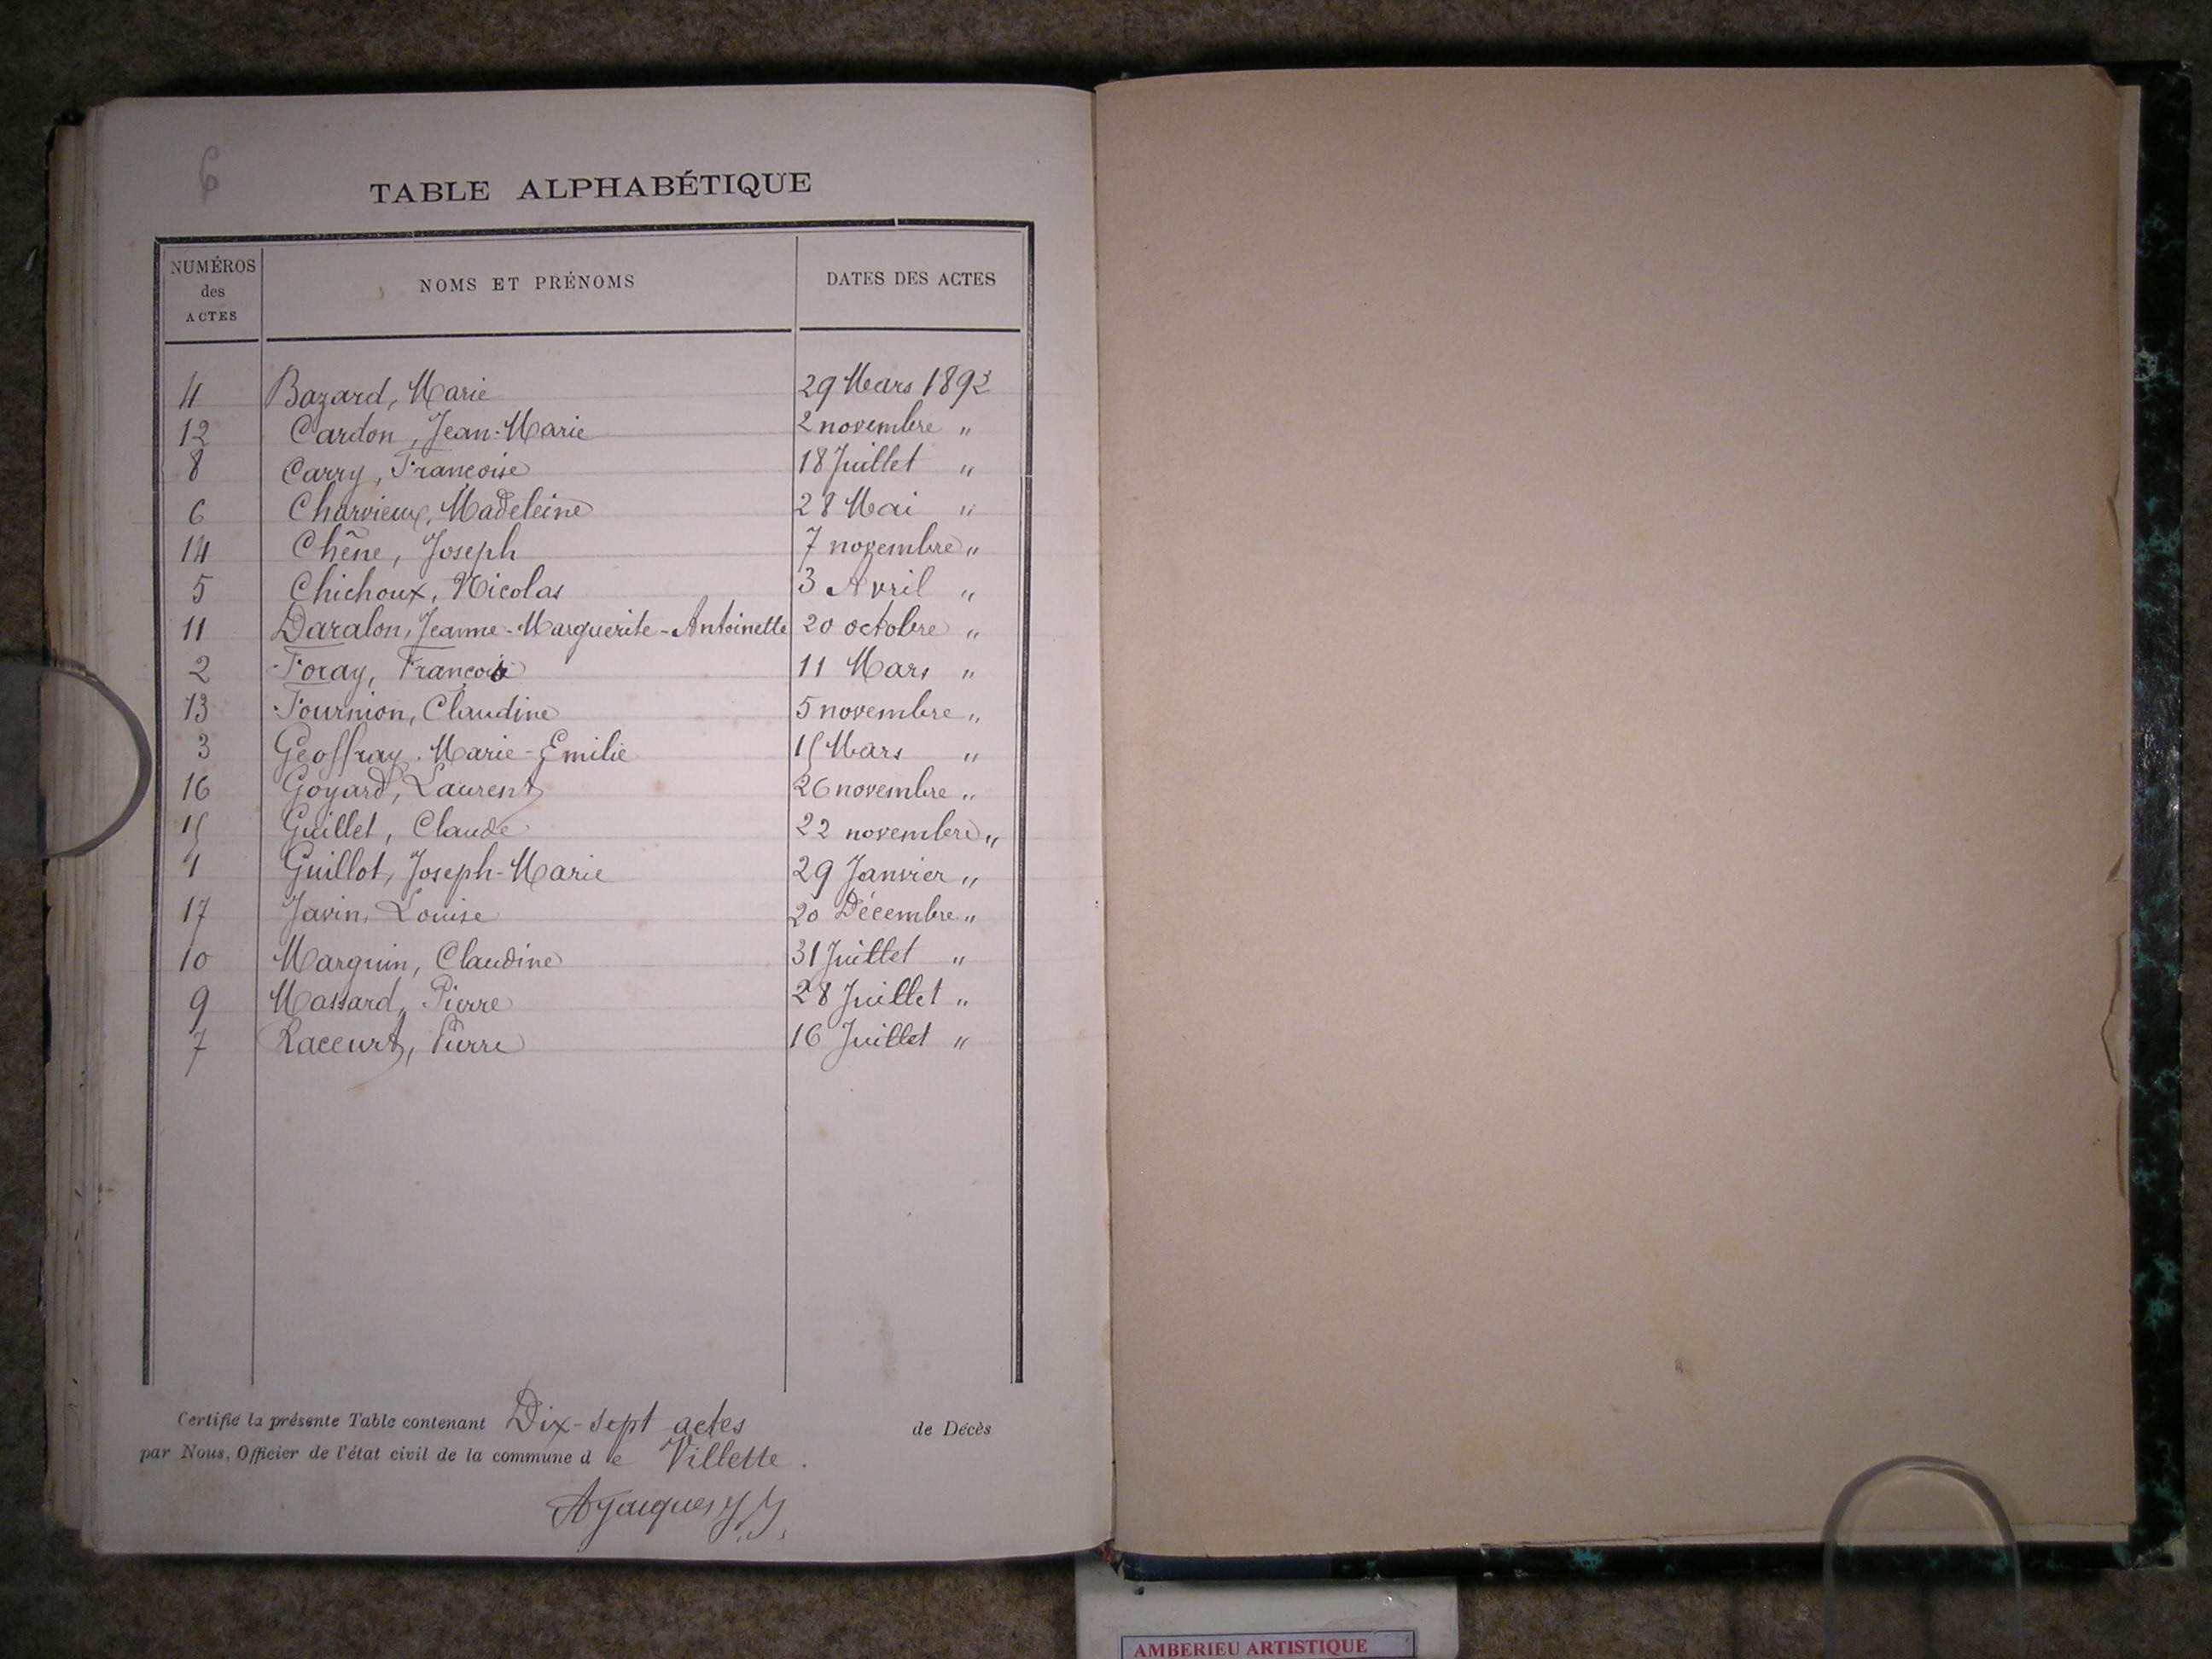 6
TABLE ALPHABÉTIQUE
NUMÉROS des ACTES NOMS ET PRÉNOMS DATES DES ACTES
4 Bazard, Marie 29 Mars 1892
12 Cardon, Jean-Marie 2 novembre "
8 Carry, Françoise 18 Juillet "
6 Charvieux, Madeleine 28 Mai "
14 Chêne, Joseph 7 novembre "
5 Chichoux, Nicolas 3 Avril "
11 Daralon, Jeanne-Marguerite-Antoinette 20 octobre "
2 Foray, François 11 Mars "
13 Fournion, Claudine 5 novembre "
3 Geoffray. Marie-Emilie 15 Mars "
16 Goyard, Laurent 26 novembre "
15 Guillet, Claude 22 novembre "
1 Guillot, Joseph-Marie 29 Janvier "
17 Javin, Louise 20 Décembre "
10 Marguin, Claudine 31 Juillet "
9 Massard, Pierre 28 Juillet "
7 Raccurt, Pierre 16 Juillet "
Certifié la présente Table contenant Dix-sept actes de Décès
par Nous, Officier de l'état civil de la commune de Villette.
AMBERIEU ARTISTIQUE